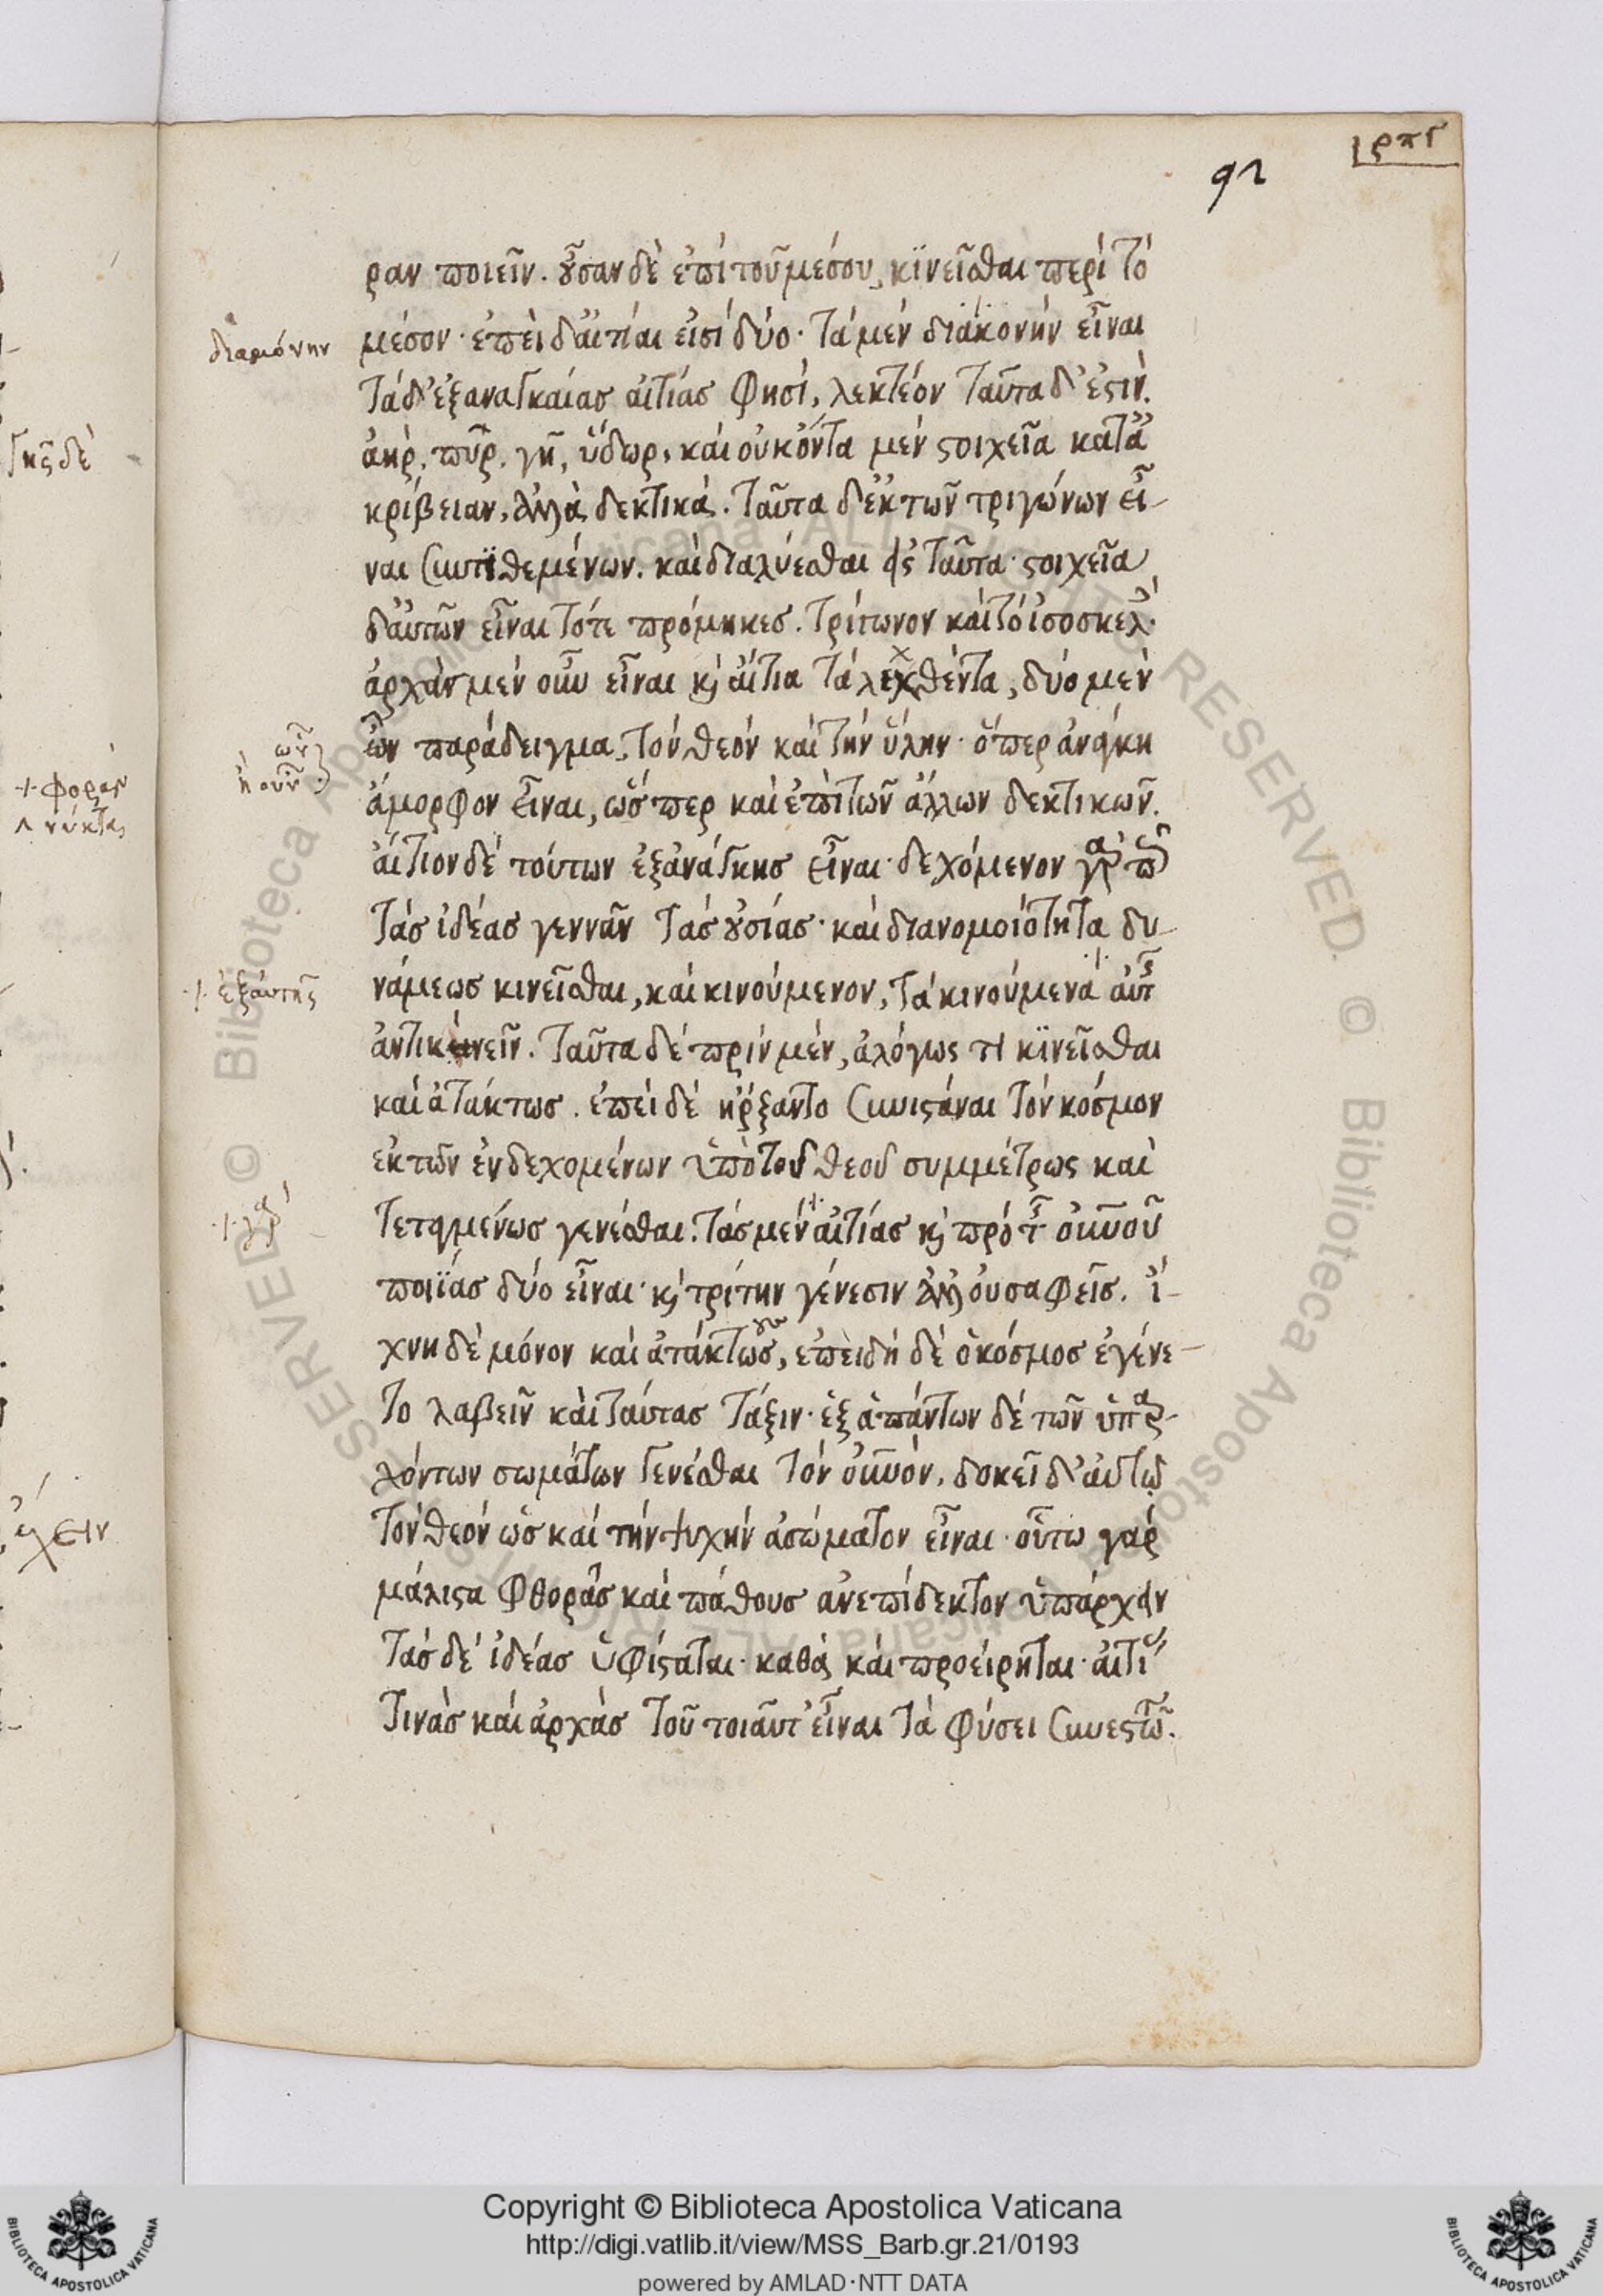 ρπγ
91
ραν ποιεῖν. οὖσαν δὲ ἐπὶ τοῦ μέσου, κϊνεῖσθαι περὶ τὸ
διαμόνην
μέσον· ἐπεὶ δ' αἰτίαι εἰσὶ δύο· τὰ μὲν διάκονὴν εἶναι
τὰ δ' ἐξ αναγκαίας αἰτίας φησὶ, λεκτέον ταῦτα δ' ἐστὶν.
γῆς δὲ
ἀὴρ. πῦρ. γῆ, ὕδωρ, καὶ οὐκ ὄντα μὲν στοιχεῖα κατὰ
κρίβειαν, ἀλλὰ δεκτικά. ταῦτα δ' ἐκ τῶν τριγώνων εἶ-
ναι συντϊθεμένων. καὶ διαλύεσθαι εἰς ταῦτα· στοιχεῖα
δ' αὐτῶν εἶναι τότε πρόμηκες. τρίγωνον καὶ τὸ ἰσοσκελ·
ἀρχὰς μὲν οὖν εἶναι καὶ αἴτια τὰ λεχθέντα, δύο μὲν
ὧν
ἢ οὖν
ὧν παράδειγμα, τὸν θεόν καὶ τὴν ὕλην· ὅπερ ἀνάγκη
·/· φορὰν
νύκτας
ἄμορφον εἶναι, ὥσπερ καὶ ἐπὶ τῶν ἄλλων δεκτικῶν.
αἴτιον δὲ τούτων ἐξ ἀνάγκης εἶναι· δεχόμενον γάρ π
τὰς ἰδέας γεννᾶν τὰς οὐσίας· καὶ διανομοιότητα δυ-
·/· ἐξ αὐτῆς
νάμεως κινεῖσθαι, καὶ κινούμενον, τὰ κινούμενα αὐτ
ἀντικινεῖν. ταῦτα δὲ πρὶν μὲν, ἀλόγως τὶ κϊνεῖσθαι
καὶ ἀτάκτως. ἐπεὶ δὲ ἤρξαντο συνιστάναι τὸν κόσμον
ἐκ τῶν ἐνδεχομένων ὑπὸ τοῦ θεοῦ συμμέτρως καὶ
·/· γὰρ
τεταγμένως γενέσθαι. τὰς μὲν ·/· αἰτίας καὶ πρὸ τ οὐνοῦ
ποιϊας δύο εἶναι· καὶ τρίτην γένεσιν ἀλλ' οὐ σαφεῖς. ἴ-
χνη δὲ μόνον καὶ ἀτάκτως, ἐπειδὴ δὲ ὁ κόσμος ἐγένε-
το λαβεῖν καὶ ταύτας τάξιν· ἐξ ἁπάντων δὲ τῶν ὑπαρ-
χόντων σωμάτων γενέσθαι τὸν οὐνόν. δοκεῖ δ' αὐτῷ
ἔχειν
τὸν θεόν ὡς καὶ τὴν ψυχὴν ἀσώματον εἶναι· οὕτω γὰρ
μάλιστα φθορᾶς καὶ πάθους ἀνεπίδεκτον ὑπάρχειν
τὰς δὲ ἰδέας ὑφίσταται· καθὰ καὶ προείρηται· αἰτί
τινὰς καὶ ἀρχὰς τοῦ τοιαῦτ' εἶναι τὰ φύσει συνεστῶ.
Copyright © Biblioteca Apostolica Vaticana
http://digi.vatlib.it/view/MSS_Barb.gr.21/0193
powered by AMLAD·NTT DATA